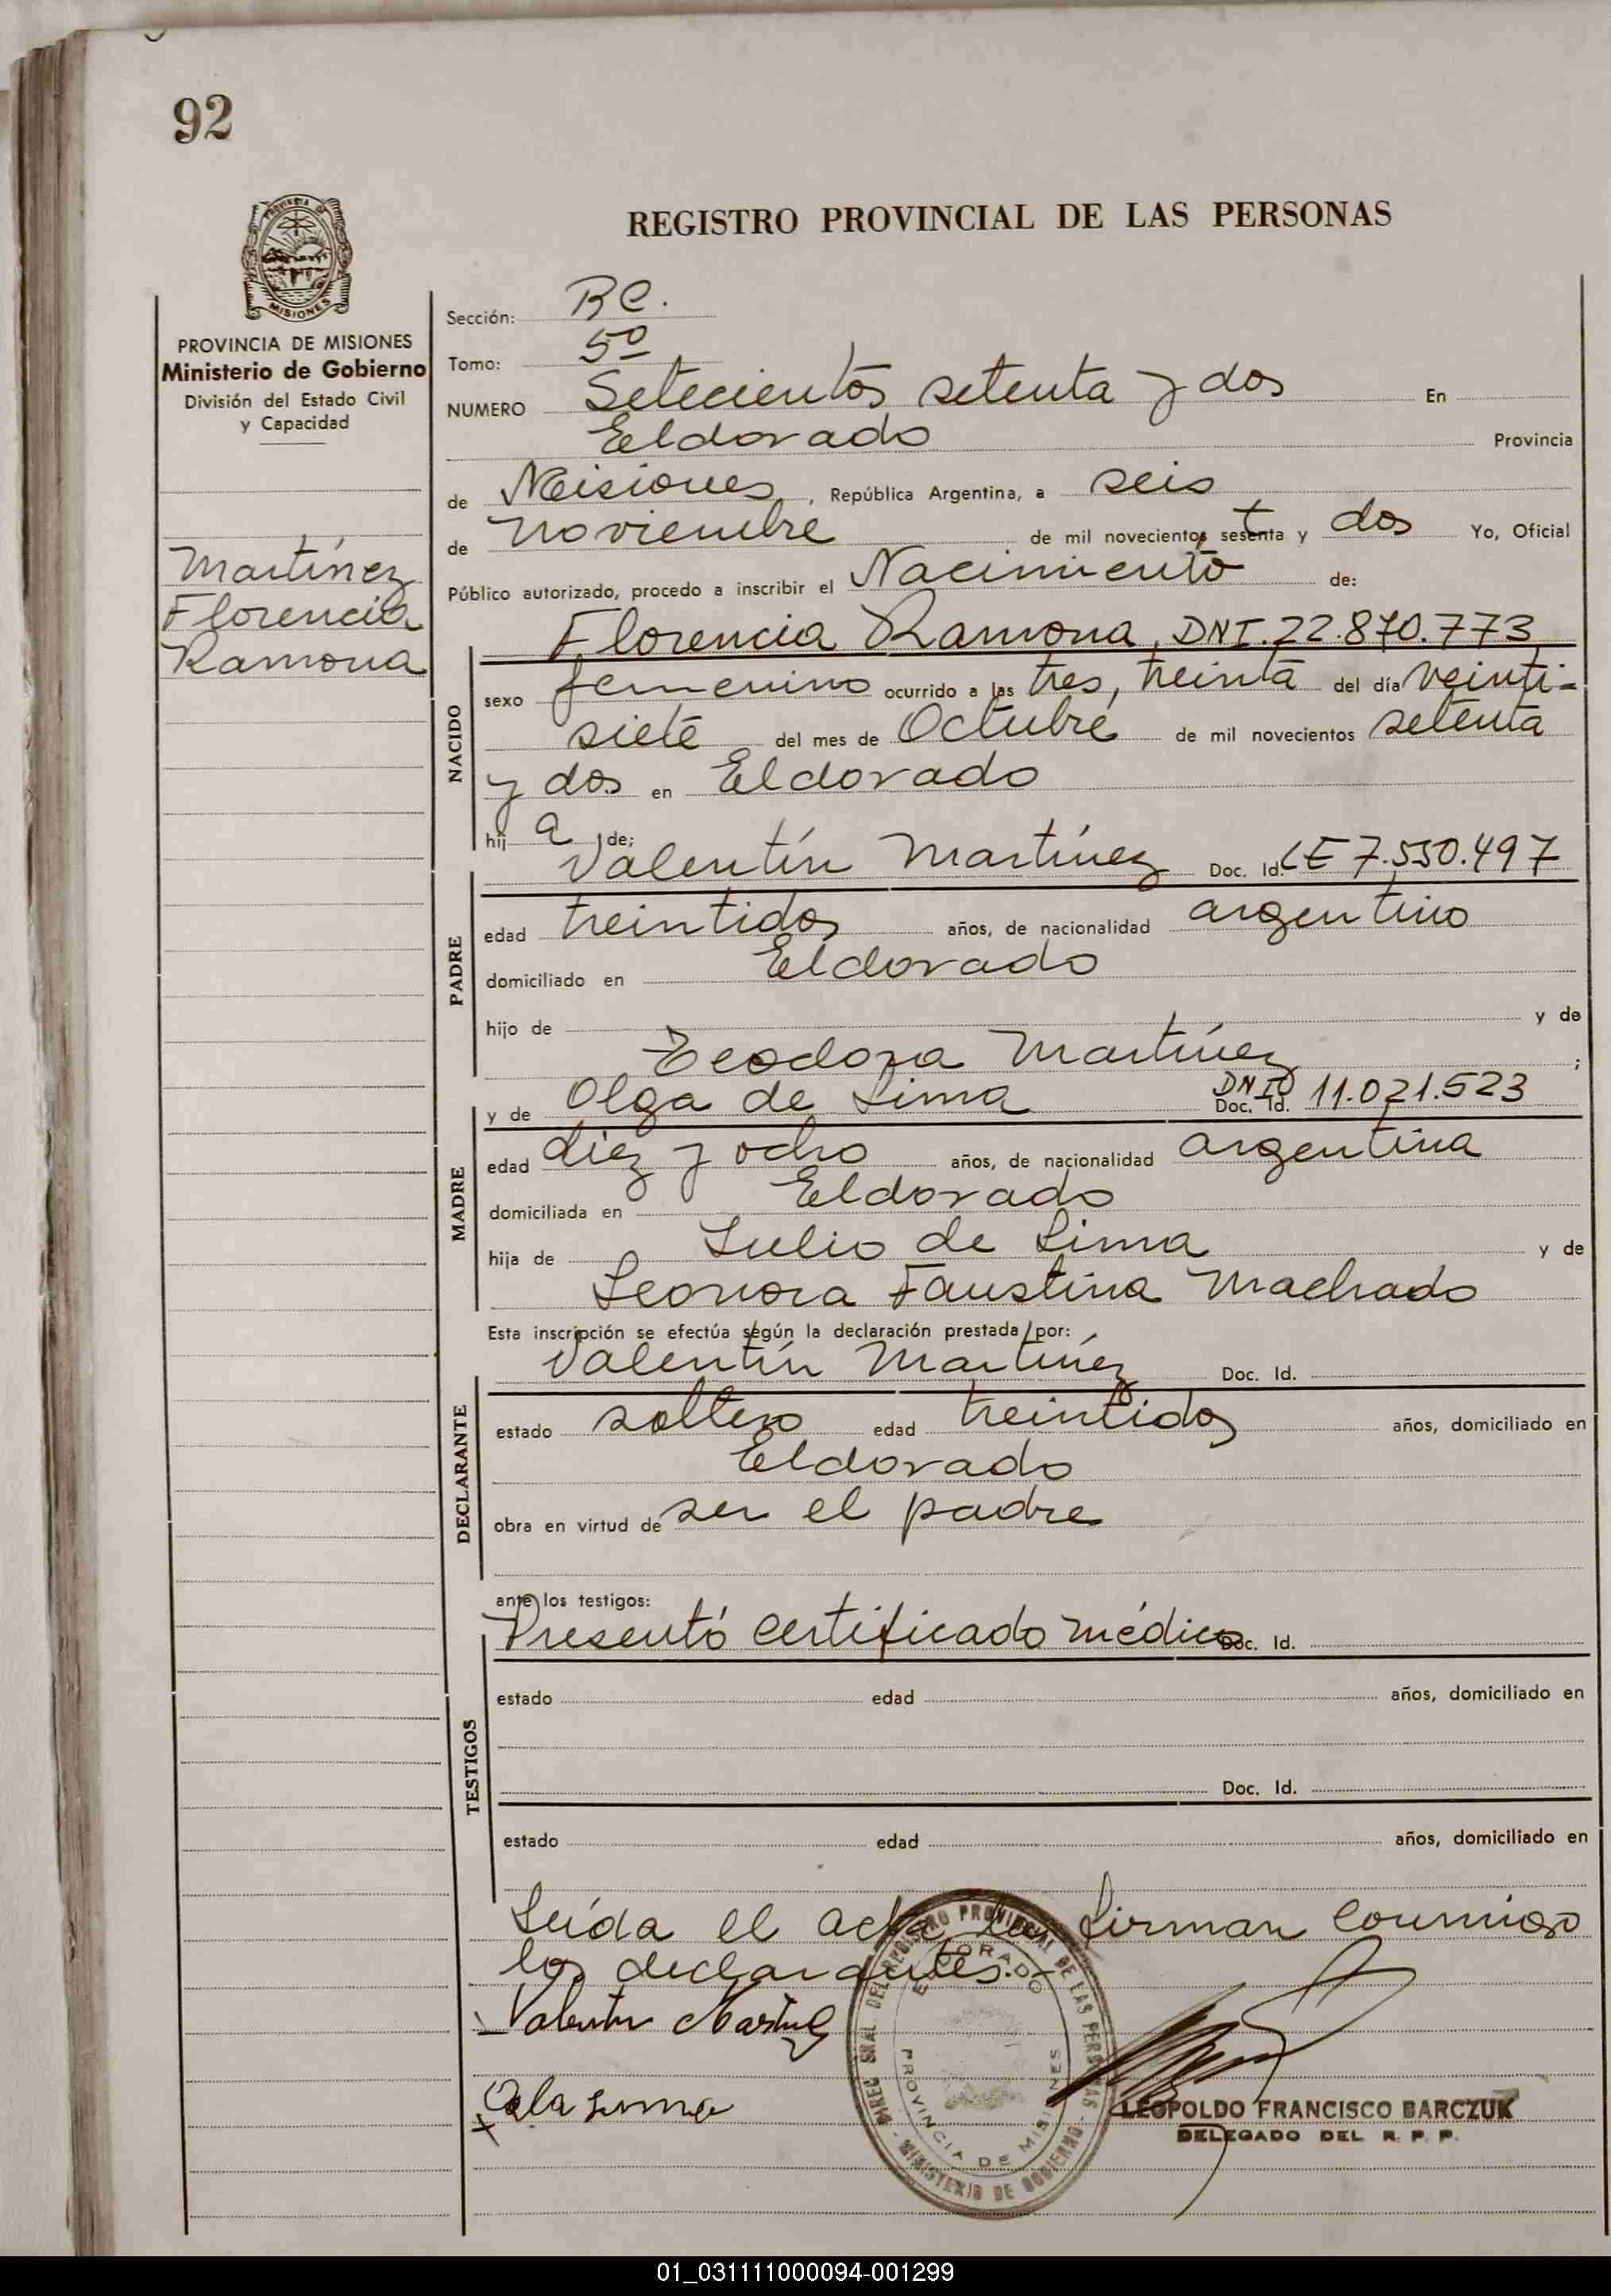 92
REGISTRO PROVINCIAL DE LAS PERSONAS
MISIONES
PROVINCIA DE MISIONES
Ministerio de Gobierno
División del Estado Civil
y Capacidad
Martínez
Florencia
Ramona
Sección:
Tomo: 5º
NUMERO Setecientos setenta y dos En
Eldorado Provincia
de Misiones, República Argentina, a seis
de noviembre de mil novecientos setenta y dos Yo, Oficial
Público autorizado, procedo a inscribir el Nacimiento de:
NACIDO
Florencia Ramona, DNI. 22.870.773
sexo femenino ocurrido a las tres, treinta del día veinti-
siete del mes de Octubre de mil novecientos setenta
y dos en Eldorado
hij a de:
PADRE
Valentín Martínez Doc. Id. LE 7.550.497
edad treintidos años, de nacionalidad argentino
domiciliado en Eldorado
hijo de y de
Teodora Martínez ;
MADRE
y de Olga de Lima Doc. Id. DNI 11.021.523
edad diez y ocho años, de nacionalidad argentina
domiciliada en Eldorado
hija de Julio de Lima y de
Leonora Faustina Machado
Esta inscripción se efectúa según la declaración prestada por:
DECLARANTE
Valentín Martínez Doc. Id.
estado soltero edad treintidos años, domiciliado en
Eldorado
obra en virtud de ser el padre
ante los testigos:
TESTIGOS
Presentó certificado médico Doc. Id.
estado edad años, domiciliado en
Doc. Id.
estado edad años, domiciliado en
Leída el acta la firman conmigo
los declarantes.-
Valentin Martinez
DEL REGISTRO PROVINCIAL DE LAS PERSONAS - MINISTERIO DE GOBIERNO -
ELDORADO
PROVINCIA DE MISIONES
LEOPOLDO FRANCISCO BARCZUK
DELEGADO DEL R. P. P.
01_031111000094-001299